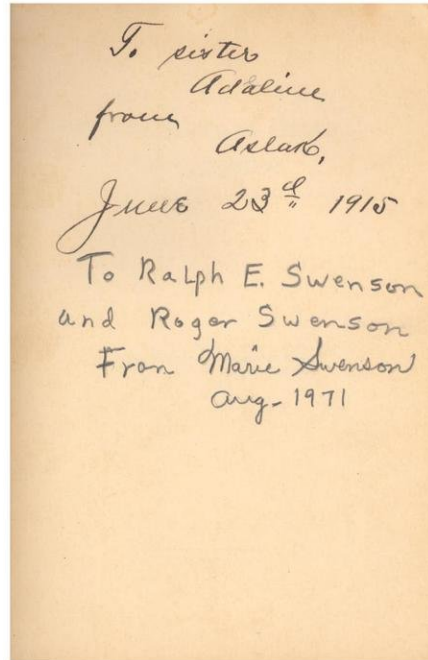 To sister
Adaline
from
Aslak,
June 23d 1915
To Ralph E. Swenson
and Roger Swenson
Fron Marie Swenson
Aug- 1971